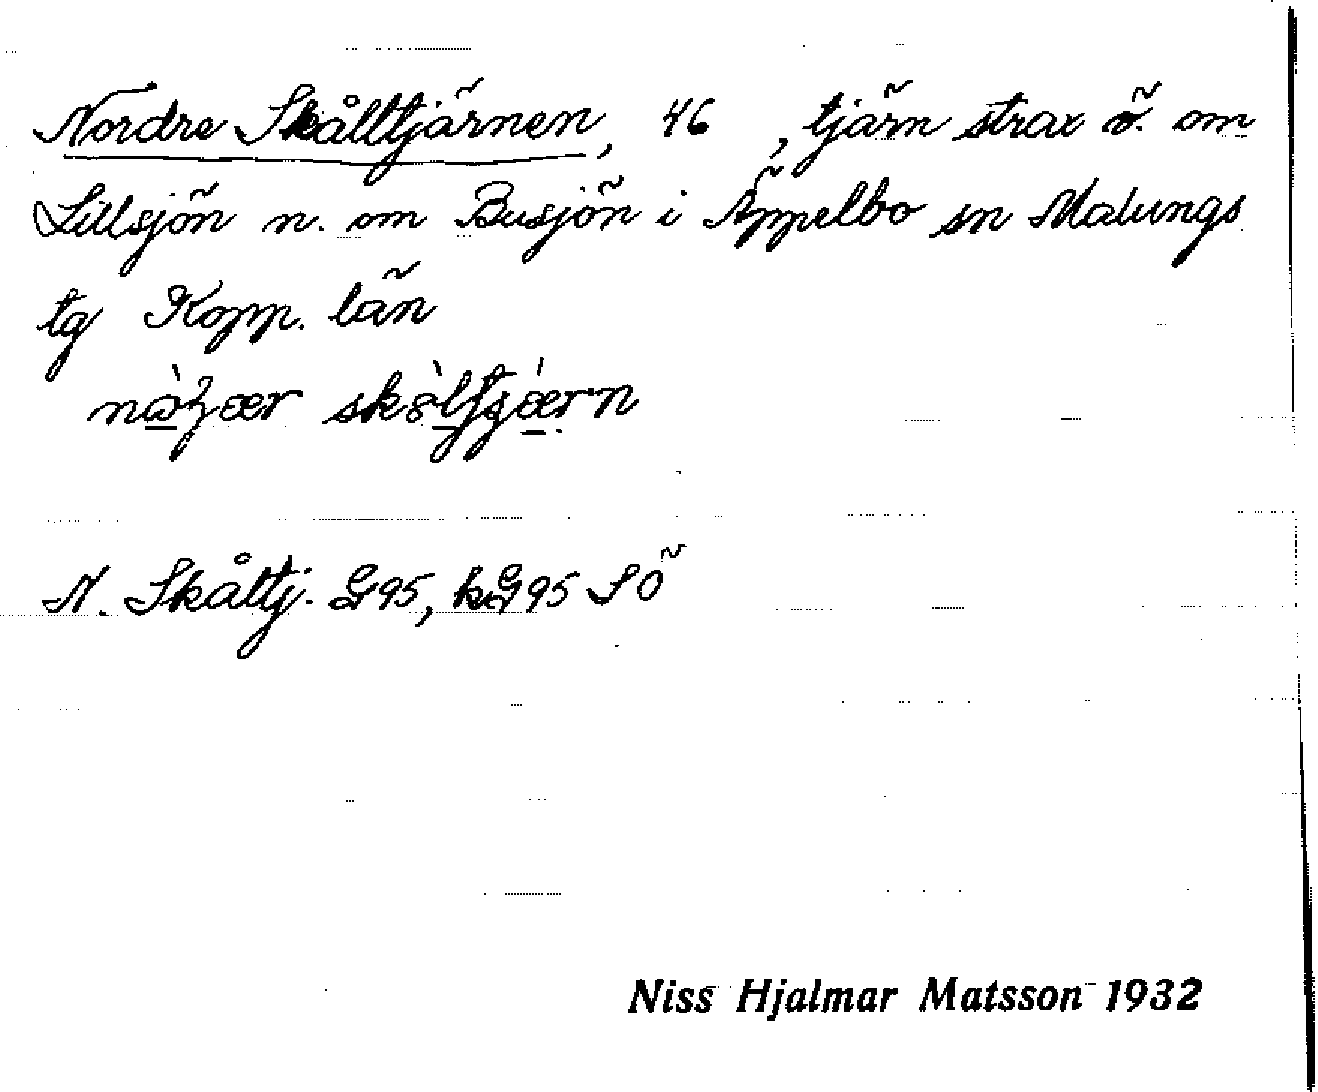 Nordre Skålltjärnen, 46 , tjärn strax ö. om
Lillsjön n. om Busjön i Äppelbo sn Malungs
tg Kopp. län
N. Skåltj. G95, kG95 SO
Niss Hjalmar Matsson 1932